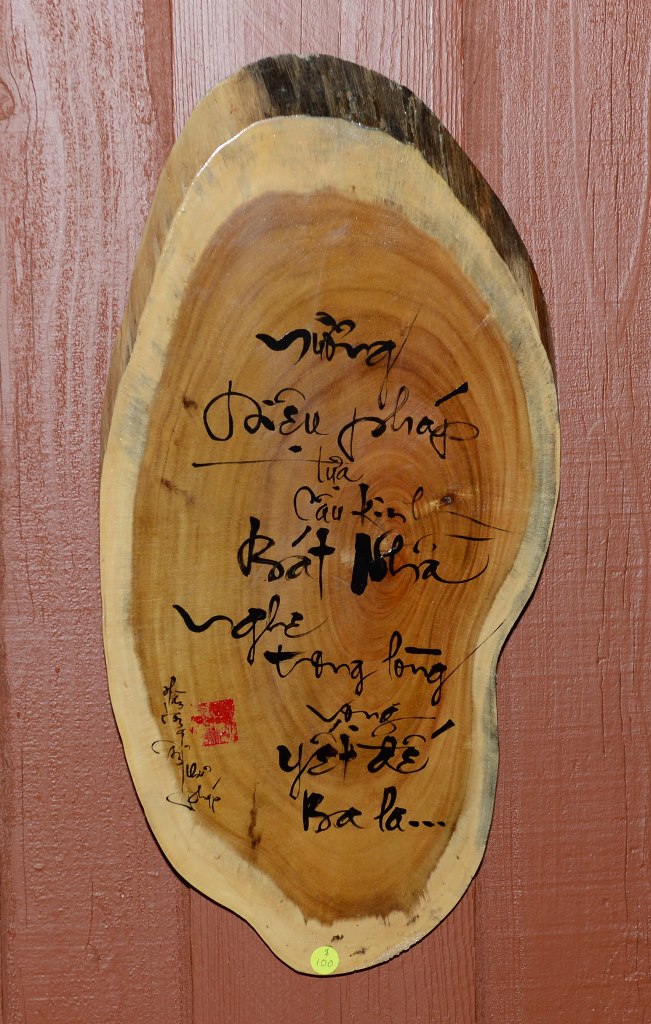 Nương
Diệu pháp
tựa
Câu kinh
Bát Nhã
Nghe
trong lòng
vọng
yết đế
Ba la...
$
100